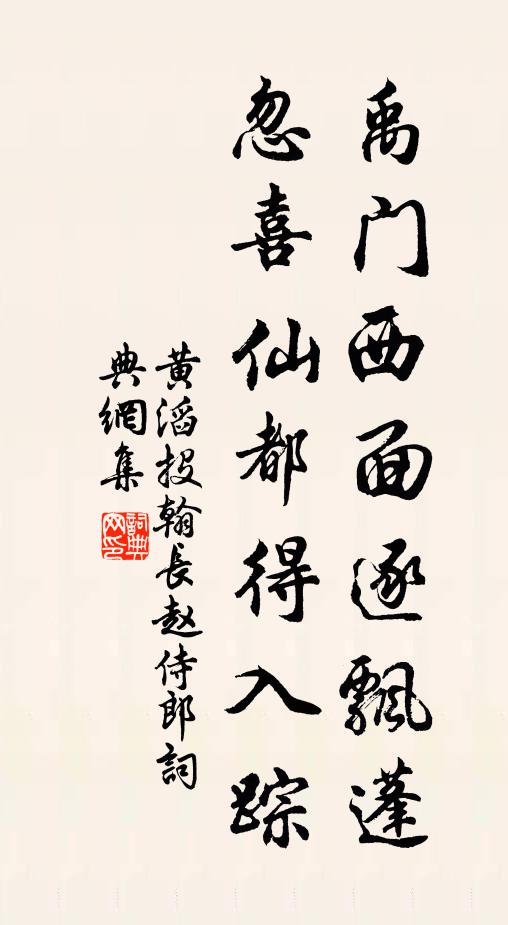 禹门西面逐飘蓬
忽喜仙都得入踪
黄滔投翰長赵侍郎詞
典網集
詞典網印